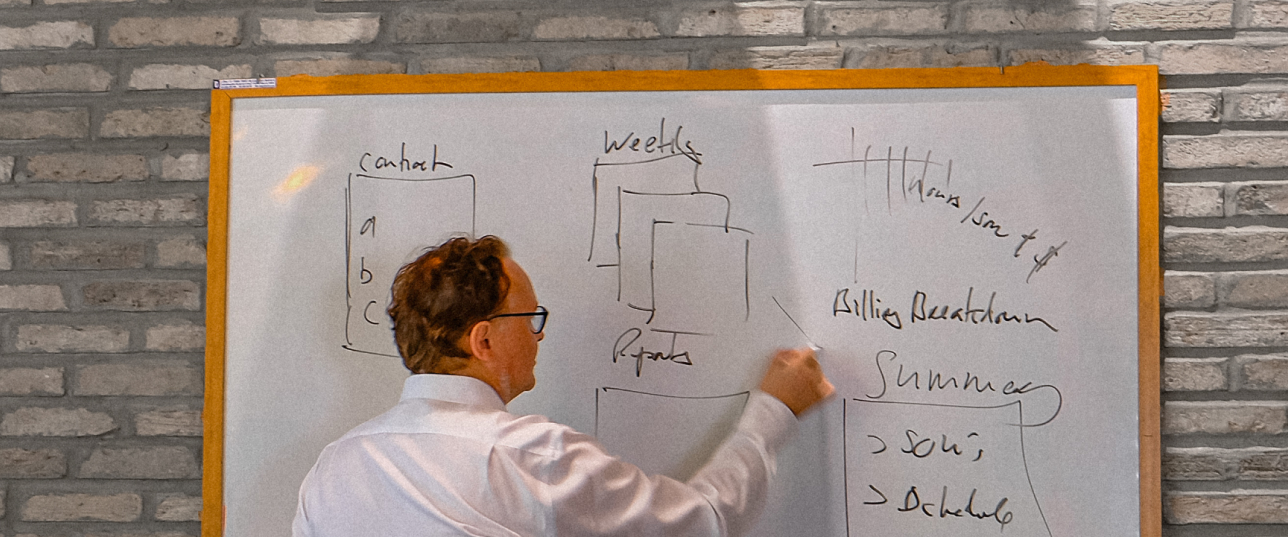 Contract
a
b
c
Weekly
Reports
Hours / SOW + $
Billing Breakdown
Summary
> SOW's
>